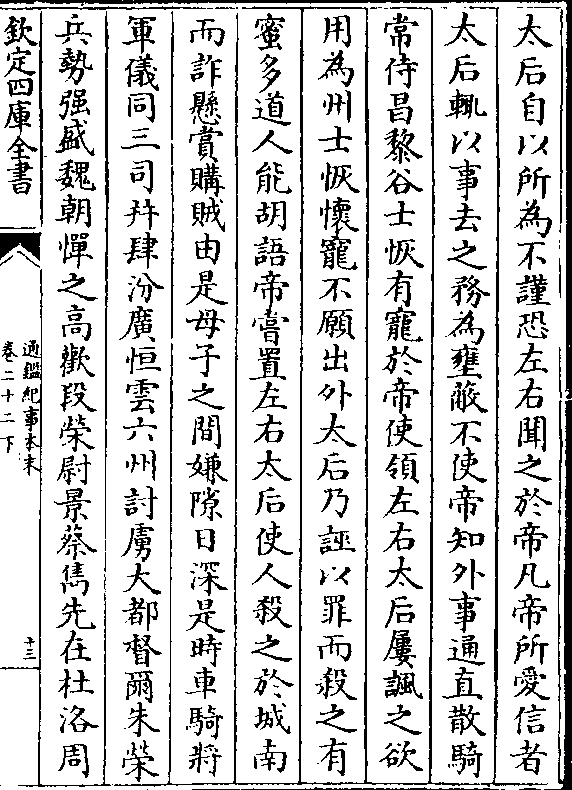 太后自以所為不謹恐左右聞之於帝凡帝所愛信者
太后輒以事去之務為壅蔽不使帝知外事通直散騎
常侍昌黎谷士恢有寵於帝使領左右太后屢諷之欲
用為州士恢懷寵不願出外太后乃誣以罪而殺之有
蜜多道人能胡語帝嘗置左右太后使人殺之於城南
而詐懸賞購賊由是母子之間嫌隙日深是時車騎將
軍儀同三司并肆汾廣恒雲六州討虜大都督爾朱榮
兵勢强盛魏朝憚之高歡段榮尉景蔡雋先在杜洛周
欽定四庫全書
通鑑紀事本末
卷二十二下
十三